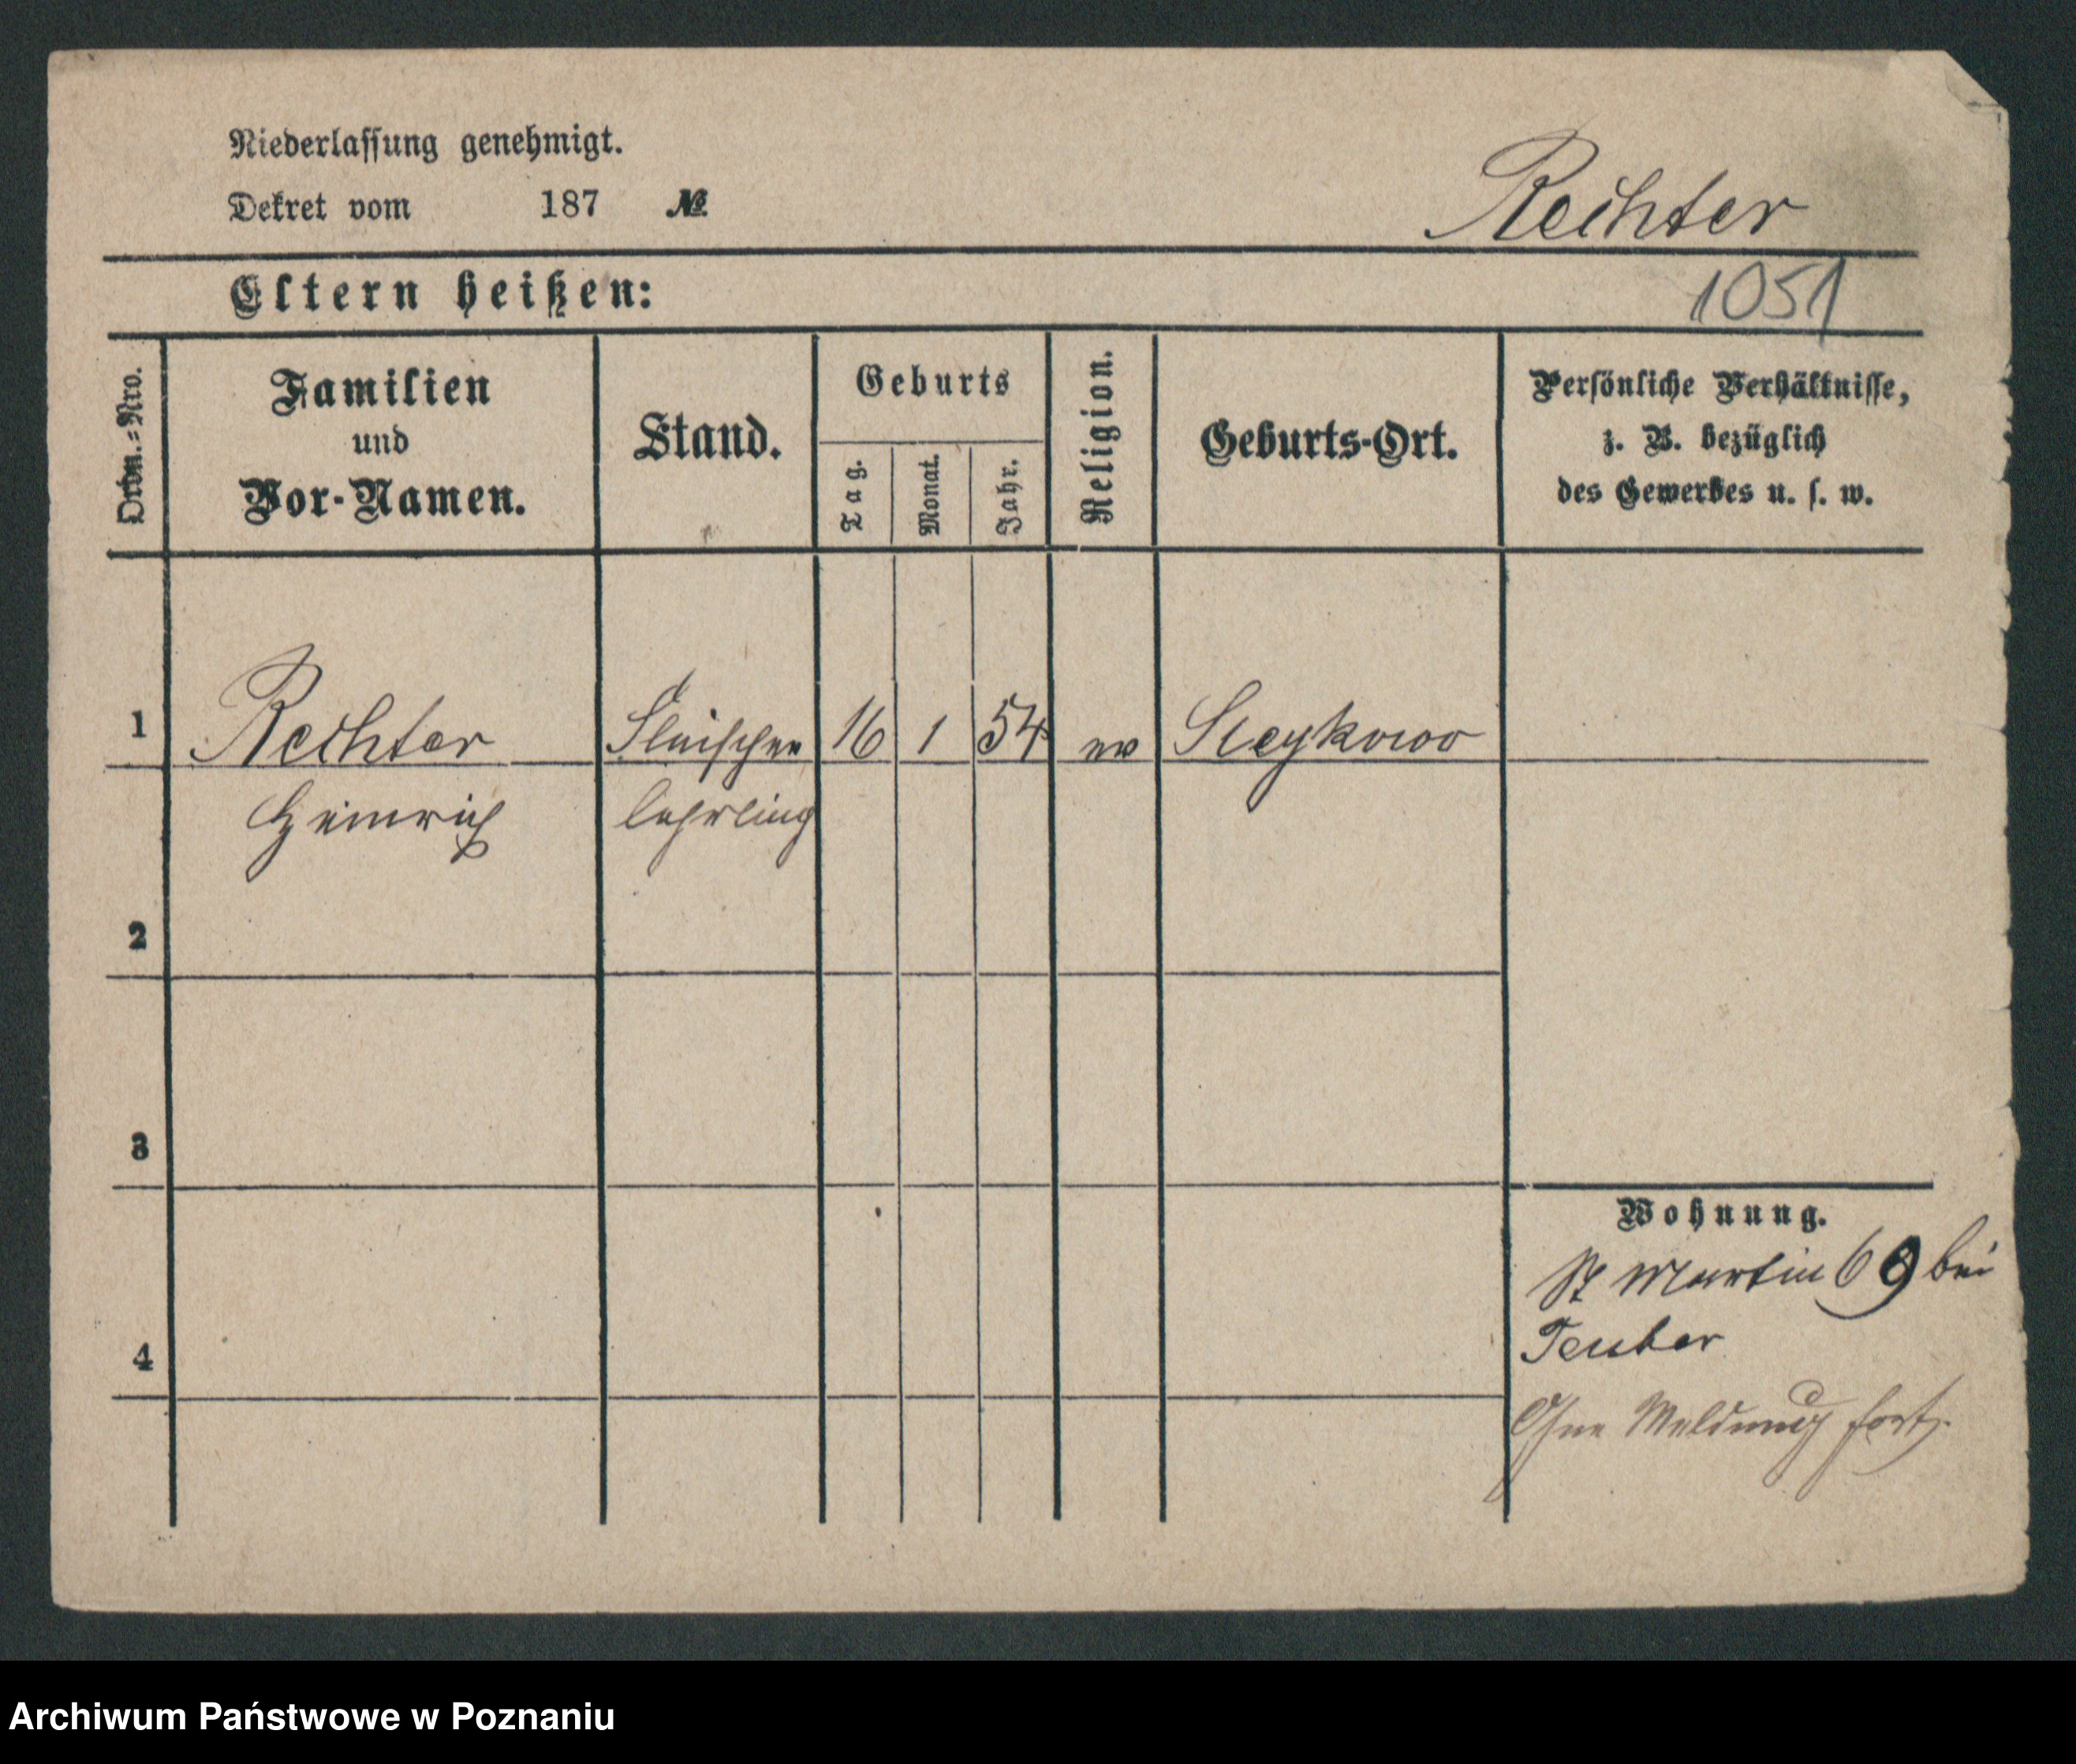 Niederlassung genehmigt.
Dekret vom 187 №
Rechter
Eltern heißen:
1051
Ordn.=Nro.
Familien
und
Vor-Namen.
Stand.
Geburts
Tag.
Monat.
Jahr.
Religion.
Geburts-Ort.
Persönliche Verhältnisse,
z. B. bezüglich
des Gewerbes u. s. w.
1 Rechter Fleischer 16 1 54 ev
Heinrich lehrling
2
3
4
Wohnung.
St Martin 69 bei
Teuber
Ohne Meldung fort.
Archiwum Państwowe w Poznaniu